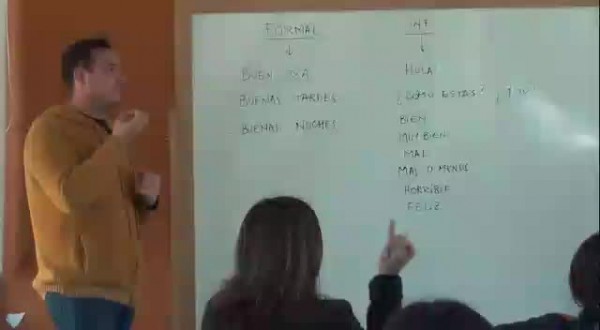 FORMAL
BUEN DÍA
BUENAS TARDES
BUENAS NOCHES
HOLA
¿CÓMO ESTAS?
BIEN
MUY BIEN
MAL
MAS O MENOS
HORRIBLE
FELIZ